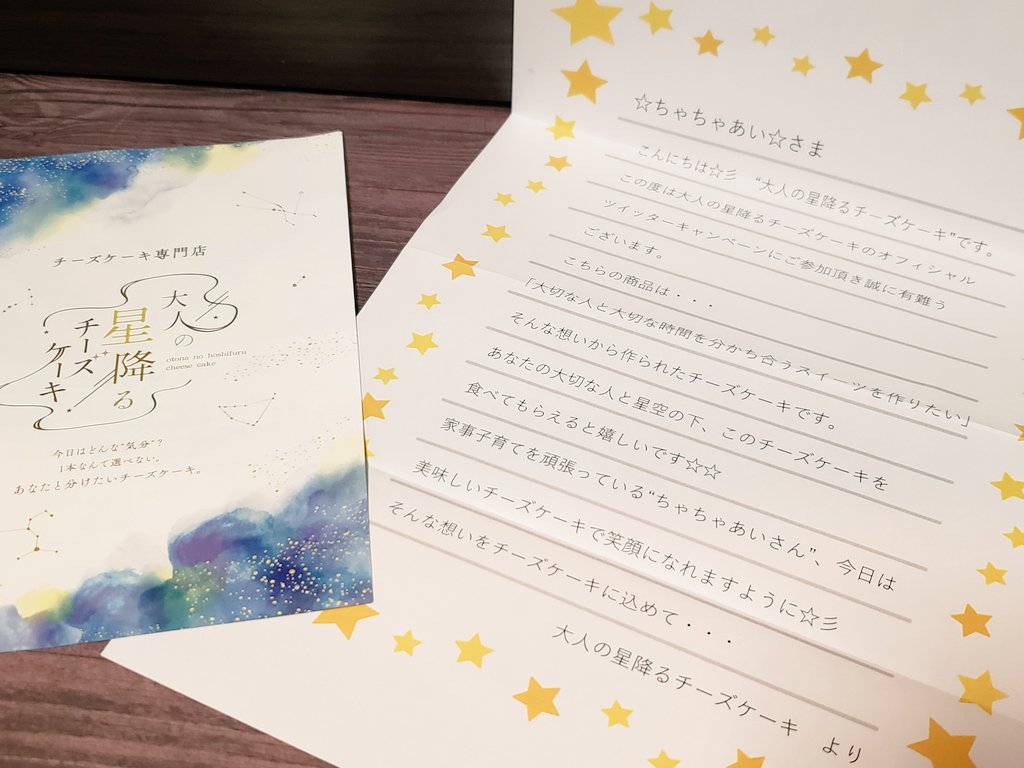 チーズケーキ専門店
大人の
星降る
チーズ
ケーキ
otona no hoshifuru
cheese cake
今日はどんな"気分"?
1本なんて選べない。
あなたと分けたいチーズケーキ。
☆ちゃちゃあい☆さま
こんにちは☆彡 "大人の星降るチーズケーキ"です。
この度は大人の星降るチーズケーキのオフィシャル
ツイッターキャンペーンにご参加頂き誠に有難う
ございます。
こちらの商品は・・・
「大切な人と大切な時間を分かち合うスイーツを作りたい」
そんな想いから作られたチーズケーキです。
あなたの大切な人と星空の下、このチーズケーキを
食べてもらえると嬉しいです☆☆
家事子育てを頑張っている"ちゃちゃあいさん"、今日は
美味しいチーズケーキで笑顔になれますように☆彡
そんな想いをチーズケーキに込めて・・・
大人の星降るチーズケーキ より